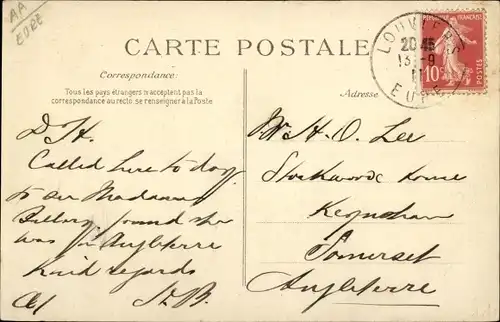 AA
EURE
CARTE POSTALE
LOUVIERS
20 45
13 - 9
11
EURE
REPUBLIQUE FRANÇAISE
10c
POSTES
Correspondance:
Tous les pays étrangers n'acceptent pas la
correspondance au recto. se renseigner à la Poste
Adresse
D H.
Called here to day
to see Madame
found she
was in Angleterre
Kind regards
H. B.
W. H. O. Lee
Stockwood House
Keynsham
Somerset
Angleterre